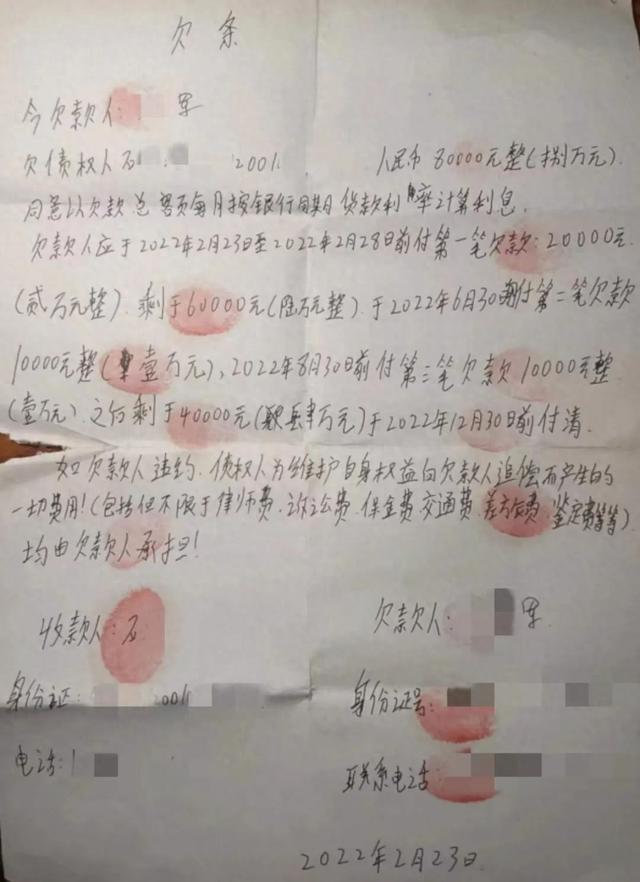 欠条
今欠款人: 军
欠债权人石 2001 人民币 80000元整(捌万元).
同意以欠款总额每月按银行同期贷款利率计算利息.
欠款人应于2022年2月23日至2022年2月28日前付第一笔欠款:20000元.
(贰万元整).剩于60000元(陆万元整).于2022年6月30前付第二笔欠款
10000元整(壹万元),2022年8月30日前付第三笔欠款10000元整
(壹万元).之后剩于40000元(肆万元)于2022年12月30日前付清.
如欠款人违约.债权人为维护自身权益向欠款人追偿而产生的
一切费用!(包括但不限于律师费.诉讼费.保全费.交通费.差旅费.鉴定费等等)
均由欠款人承担!
收款人:石
欠款人: 军.
身份证: 2001
身份证号:
电话:1
联系电话:
2022年2月23日.